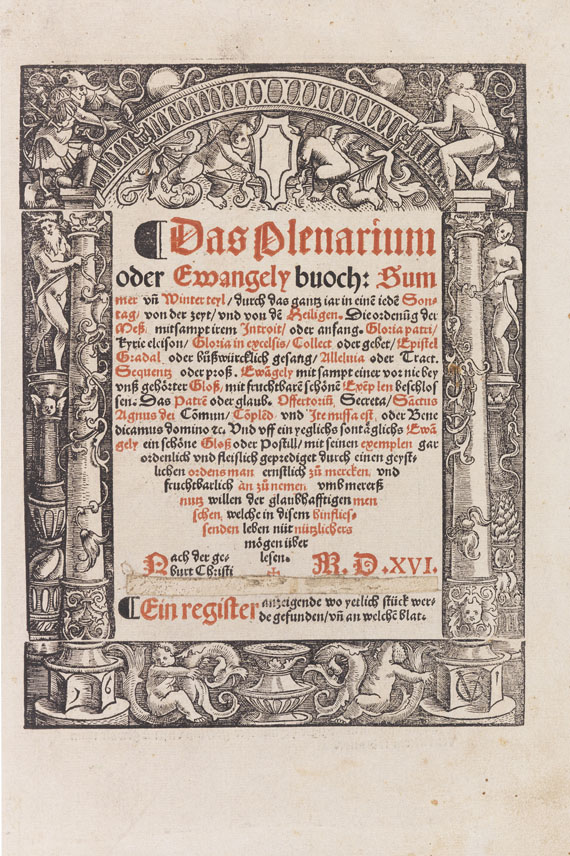 ¶ Das Plenarium
oder Ewangely buoch: Sum
mer vñ Winter teyl / durch das gantz iar in einē iedē Son-
tag / von der zeyt / vnd von dē Heiligen. Die ordenūg der
Meß. mitsampt irem Introit / oder anfang. Gloria patri /
Kyrie eleison / Gloria in excelsis / Collect oder gebet / Epistel
Gradal oder büßwürcklich gesang / Alleluia oder Tract.
Sequentz oder proß. Ewāgely mit sampt einer vor nie bey
vnß gehörter Gloß / mit fruchtbarē schönē Exēplen beschlos
sen. Das Patrē oder glaub. Offertoriū, Secreta / Sāctus
Agnus dei Cōmun / Cōplēd vnd Ite missa est, oder Bene
dicamus domino ⁊c. Vnd vff ein yeglichs sontäglichs Ewā
gely ein schöne Gloß oder Postill / mit seinen exemplen gar
ordenlich vnd fleislich geprediget durch einen geyst-
lichen ordensman ernstlich zů mercken, vnd
fruchtbarlich an zů nemen vmb mererß
nutz willen der glaubhafftigen men
schen, welche in disem hinflies-
senden leben nüt nützlichers
mögen über
Nach der ge- lesen. M. D. XVI.
burt Christi ✠
¶ Ein register anzeigende wo yetlich stück wer-
de gefunden / vñ an welchē blat.
VG